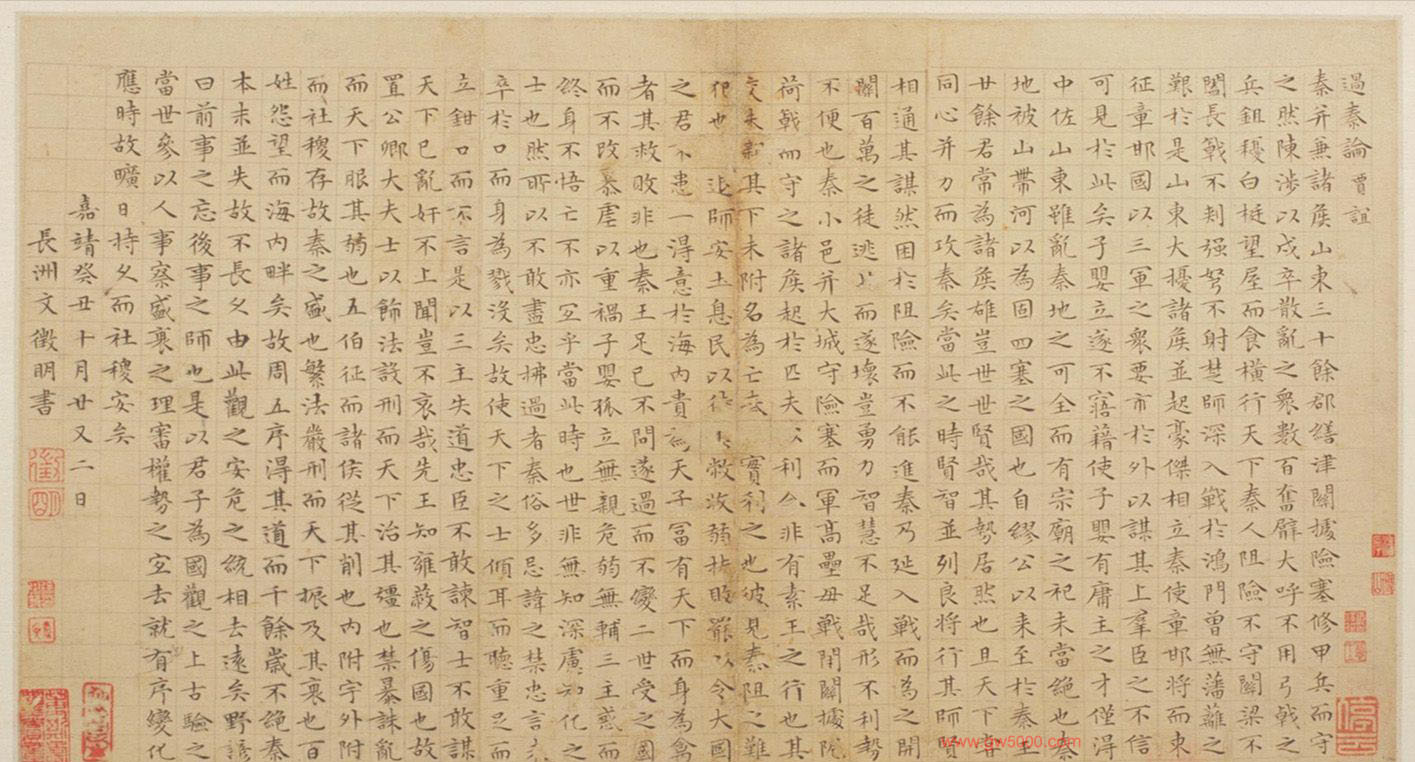 過秦論 賈誼
秦并兼諸侯山東三十餘郡繕津關據險塞修甲兵而守
之然陳涉以戍卒散亂之衆數百奮臂大呼不用弓戟之
兵鉏耰白梃望屋而食橫行天下秦人阻險不守關梁不
闔長戟不刺强弩不射楚師深入戰於鴻門曾無藩蘺之
艱於是山東大擾諸侯並起豪傑相立秦使章邯將而東
征章邯國以三軍之衆要市於外以謀其上羣臣之不信
可見於此矣子嬰立遂不寤藉使子嬰有庸主之才僅得
中佐山東雖亂秦地之可全而有宗廟之祀未當絶也秦
地被山帶河以為固四塞之國也自繆公以来至於秦王
廿餘君常為諸侯雄豈世世賢哉其勢居然也且天下甞
同心并力而攻秦矣當此之時賢智並列良将行其師賢
相通其謀然困於阻險而不能進秦乃延入戰而為之開
關百萬之徒逃北而遂壞豈勇力智慧不足哉形不利勢
不便也秦小邑并大城守險塞而軍高壘毋戰閉關據阨
荷戟而守之諸侯起於匹夫以利合非有素王之行也其
交未親其下未附名為亡秦實利之也彼見秦阻之難
犯也退師安土息民以待敝收弱扶罷以令大國
之君不患得意於海內貴為天子冨有天下而身為禽
者其救敗非也秦王足己不問遂過而不變二世受之因
而不改暴虐以重禍子嬰孤立無親危弱無輔三主惑而
終身不悟亡不亦宜乎當此時也世非無知深慮知化之
士也然所以不敢盡忠拂過者秦俗多忌諱之禁忠言未
卒於口而身為戮沒矣故使天下之士傾耳而聽重足而
立鉗口而不言是以三主失道忠臣不敢諫智士不敢謀
天下已亂奸不上聞豈不哀哉先王知雍蔽之傷國也故
置公卿大夫士以飾法設刑而天下治其彊也禁暴誅亂
而天下服其弱也五伯征而諸侯從其削也內附守外附
而社稷存故秦之盛也繁法嚴刑而天下振及其衰也百
姓怨望而海內畔矣故周五序得其道而千餘歲不絶秦
本末並失故不長久由此觀之安危之統相去遠矣野諺
曰前事之忘後事之師也是以君子為國觀之上古驗之
當世參以人事察盛衰之理審權勢之宜去就有序變化
應時故曠日持久而社稷安矣
嘉靖癸丑十月廿又二日
長洲文徵明書
www.gw5000.com